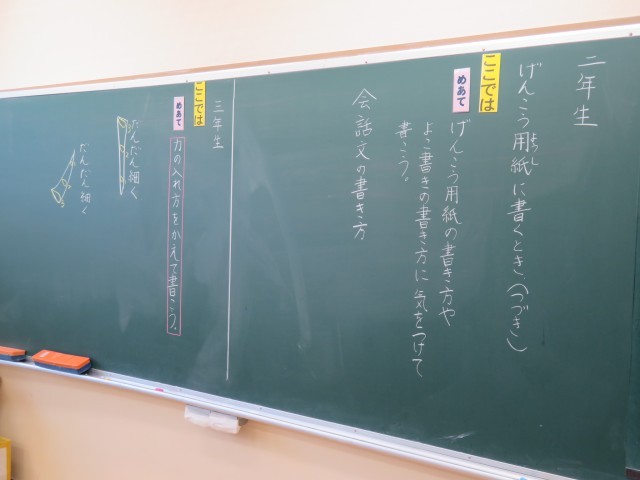 二年生
げんこう用紙に書くとき、(つづき)
ようし
ここでは
めあて
げんこう用紙の書き方や
よこ書きの書き方に気をつけて
書こう。
会話文の書き方
三年生
ここでは
めあて
力の入れ方をかえて書こう。
だんだん細く
だんだん細く